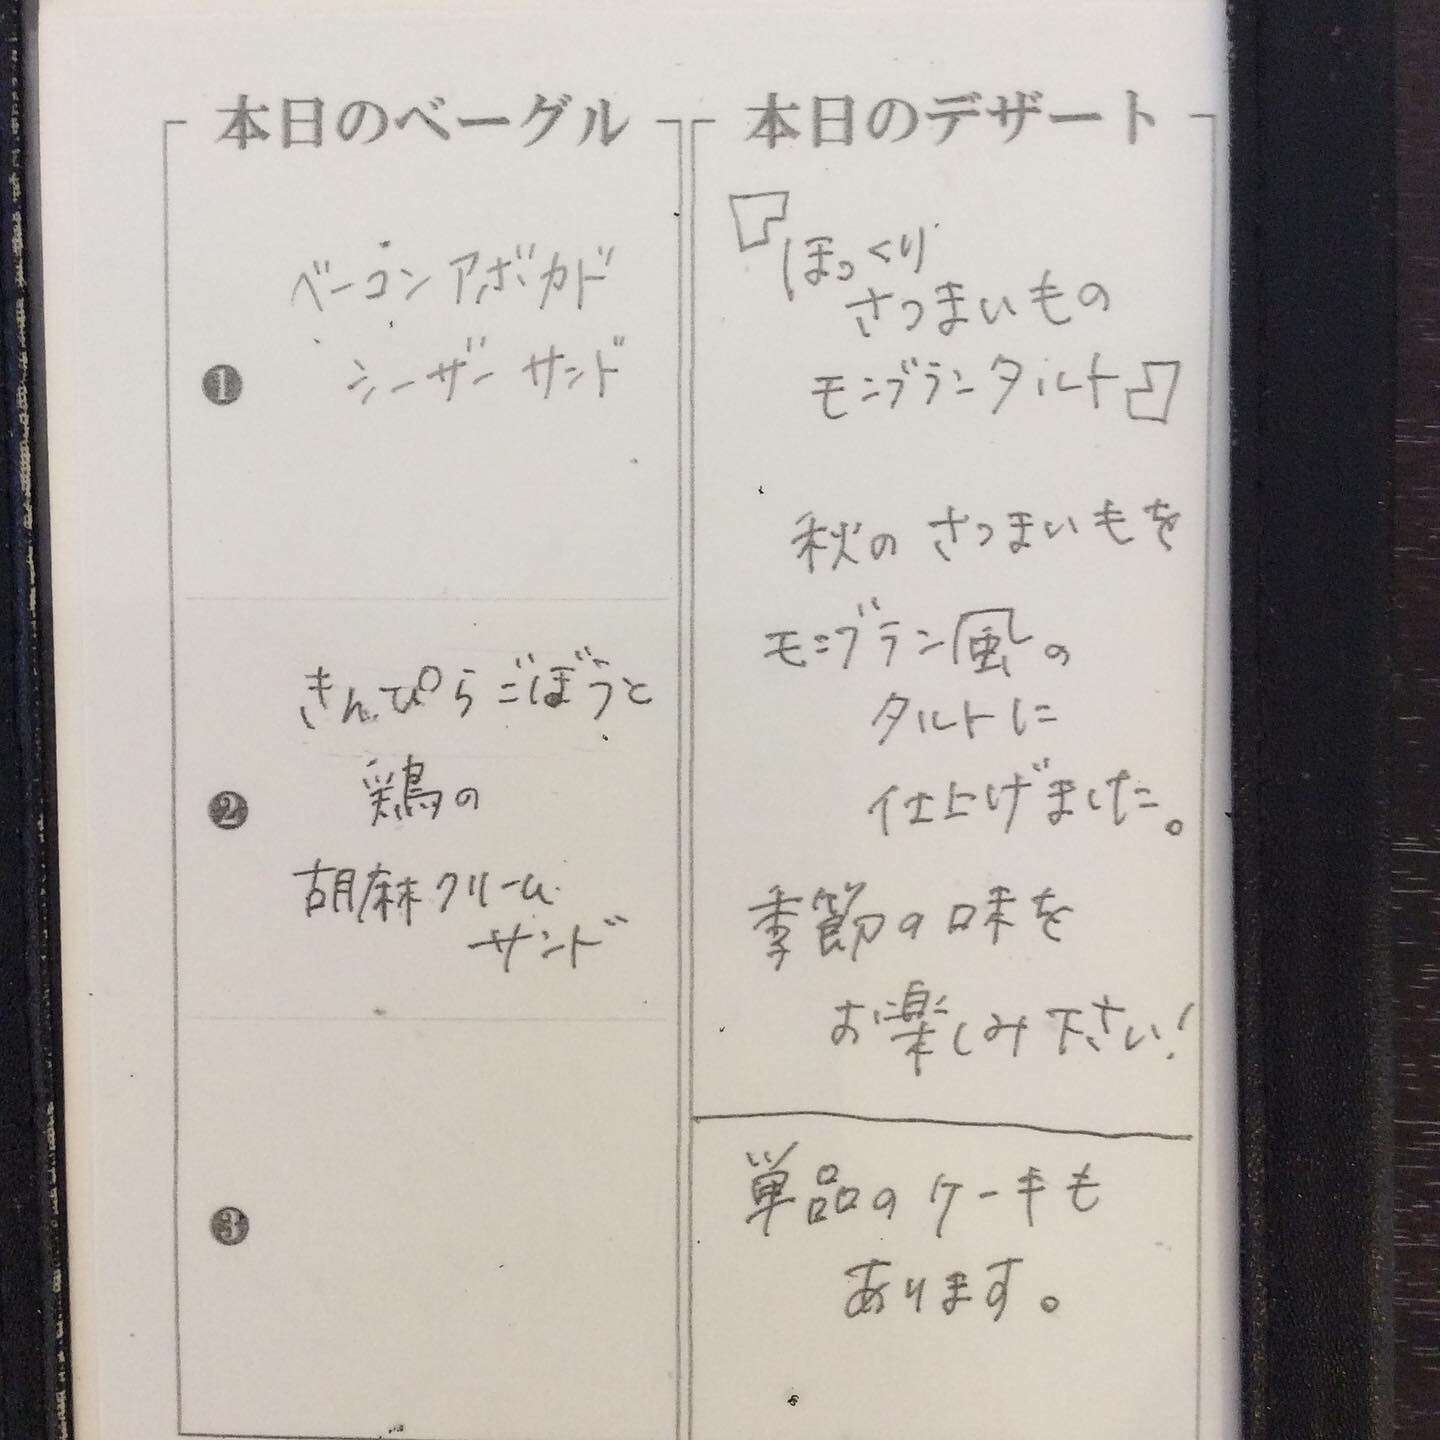 本日のベーグル
❶
ベーコンアボカド
シーザーサンド
❷
きんぴらごぼうと
鶏の
胡麻クリーム
サンド
❸
本日のデザート
『ほっくり
さつまいもの
モンブランタルト』
秋のさつまいもを
モンブラン風の
タルトに
仕上げました。
季節の味を
お楽しみ下さい!
単品のケーキも
あります。